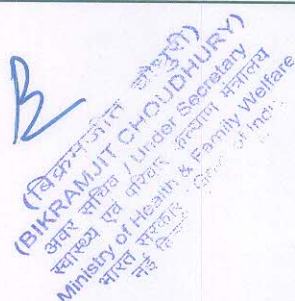 (बिक्रमजीत चौधुरी)
(BIKRAMJIT CHOUDHURY)
अवर सचिव / Under Secretary
स्वास्थ्य एवं परिवार कल्याण मंत्रालय
Ministry of Health & Family Welfare
भारत सरकार / Govt. of India
नई